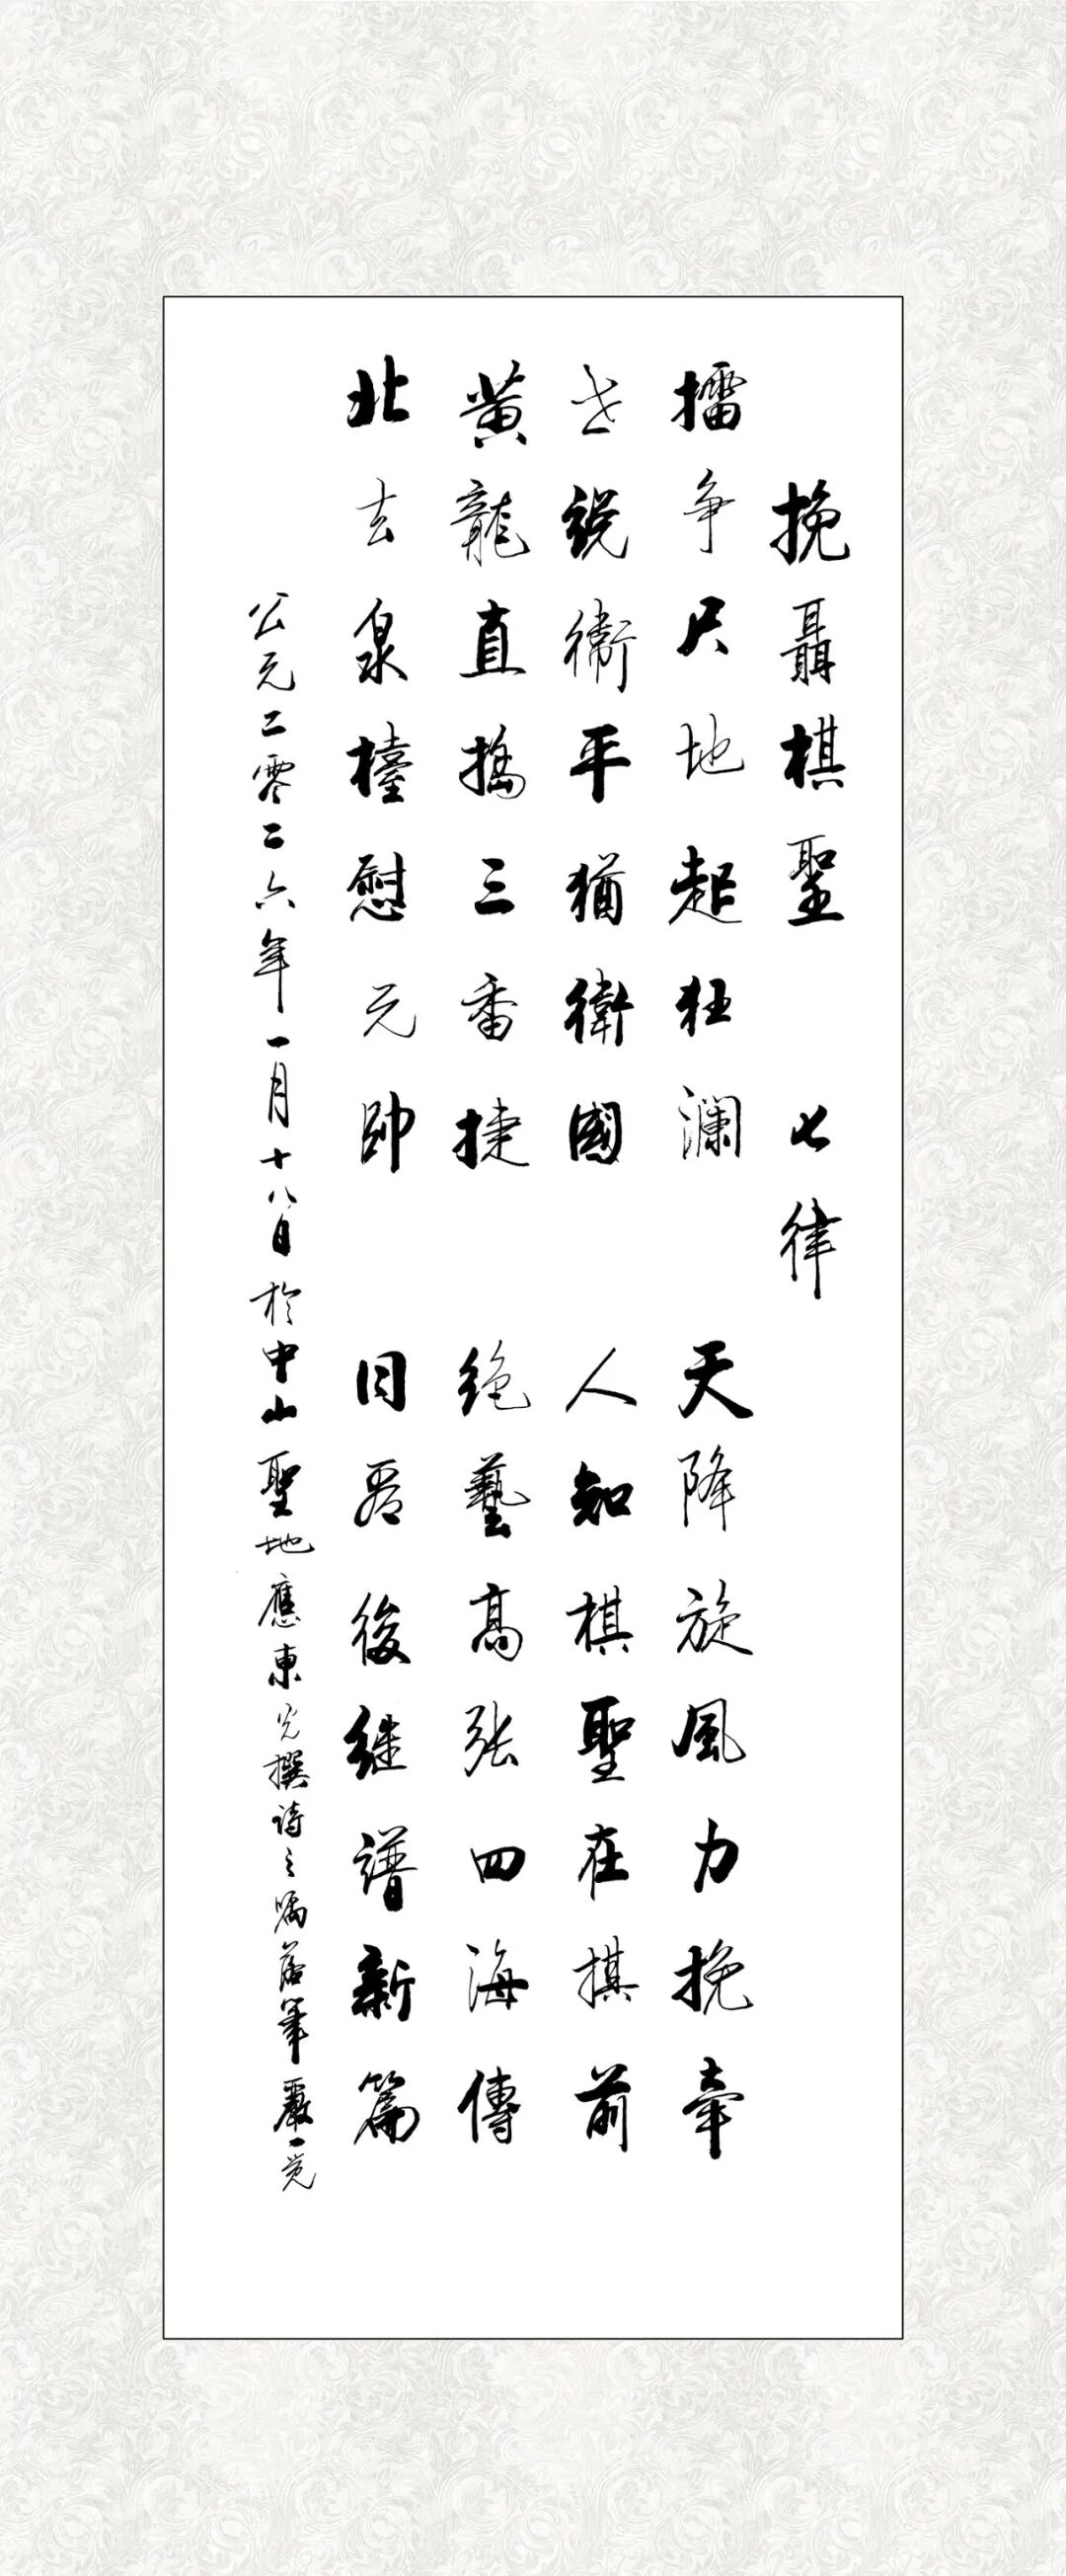 挽聶棋聖 七律
擂争尺地起狂澜 天降旋風力挽牽
世説衛平猶衛國 人知棋聖在棋前
黄龍直搗三番捷 绝藝高张四海傳
此去泉檯慰元帥 後继譜新篇
公元二零二六年一月十八日於中山聖地應東光撰詩之嘱落筆嚴一觉